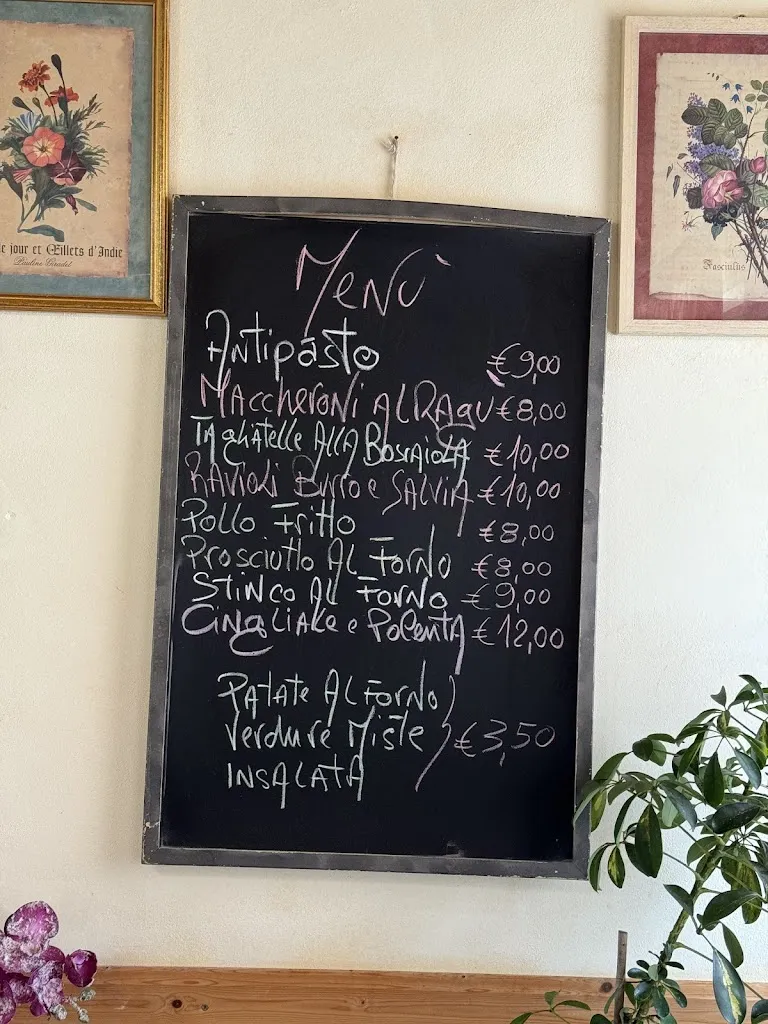 le jour et Œillets d'Indie
Pauline Girardet
Fasciculus
Menù
Antipasto €9,00
Maccheroni Al Ragu €8,00
Tagliatelle Alla Boscaiola €10,00
Ravioli Burro e Salvia €10,00
Pollo Fritto €8,00
Prosciutto Al Forno €8,00
Stinco Al Forno €9,00
Cinghiale e Polenta €12,00
Patate Al Forno
Verdure Miste €3,50
Insalata